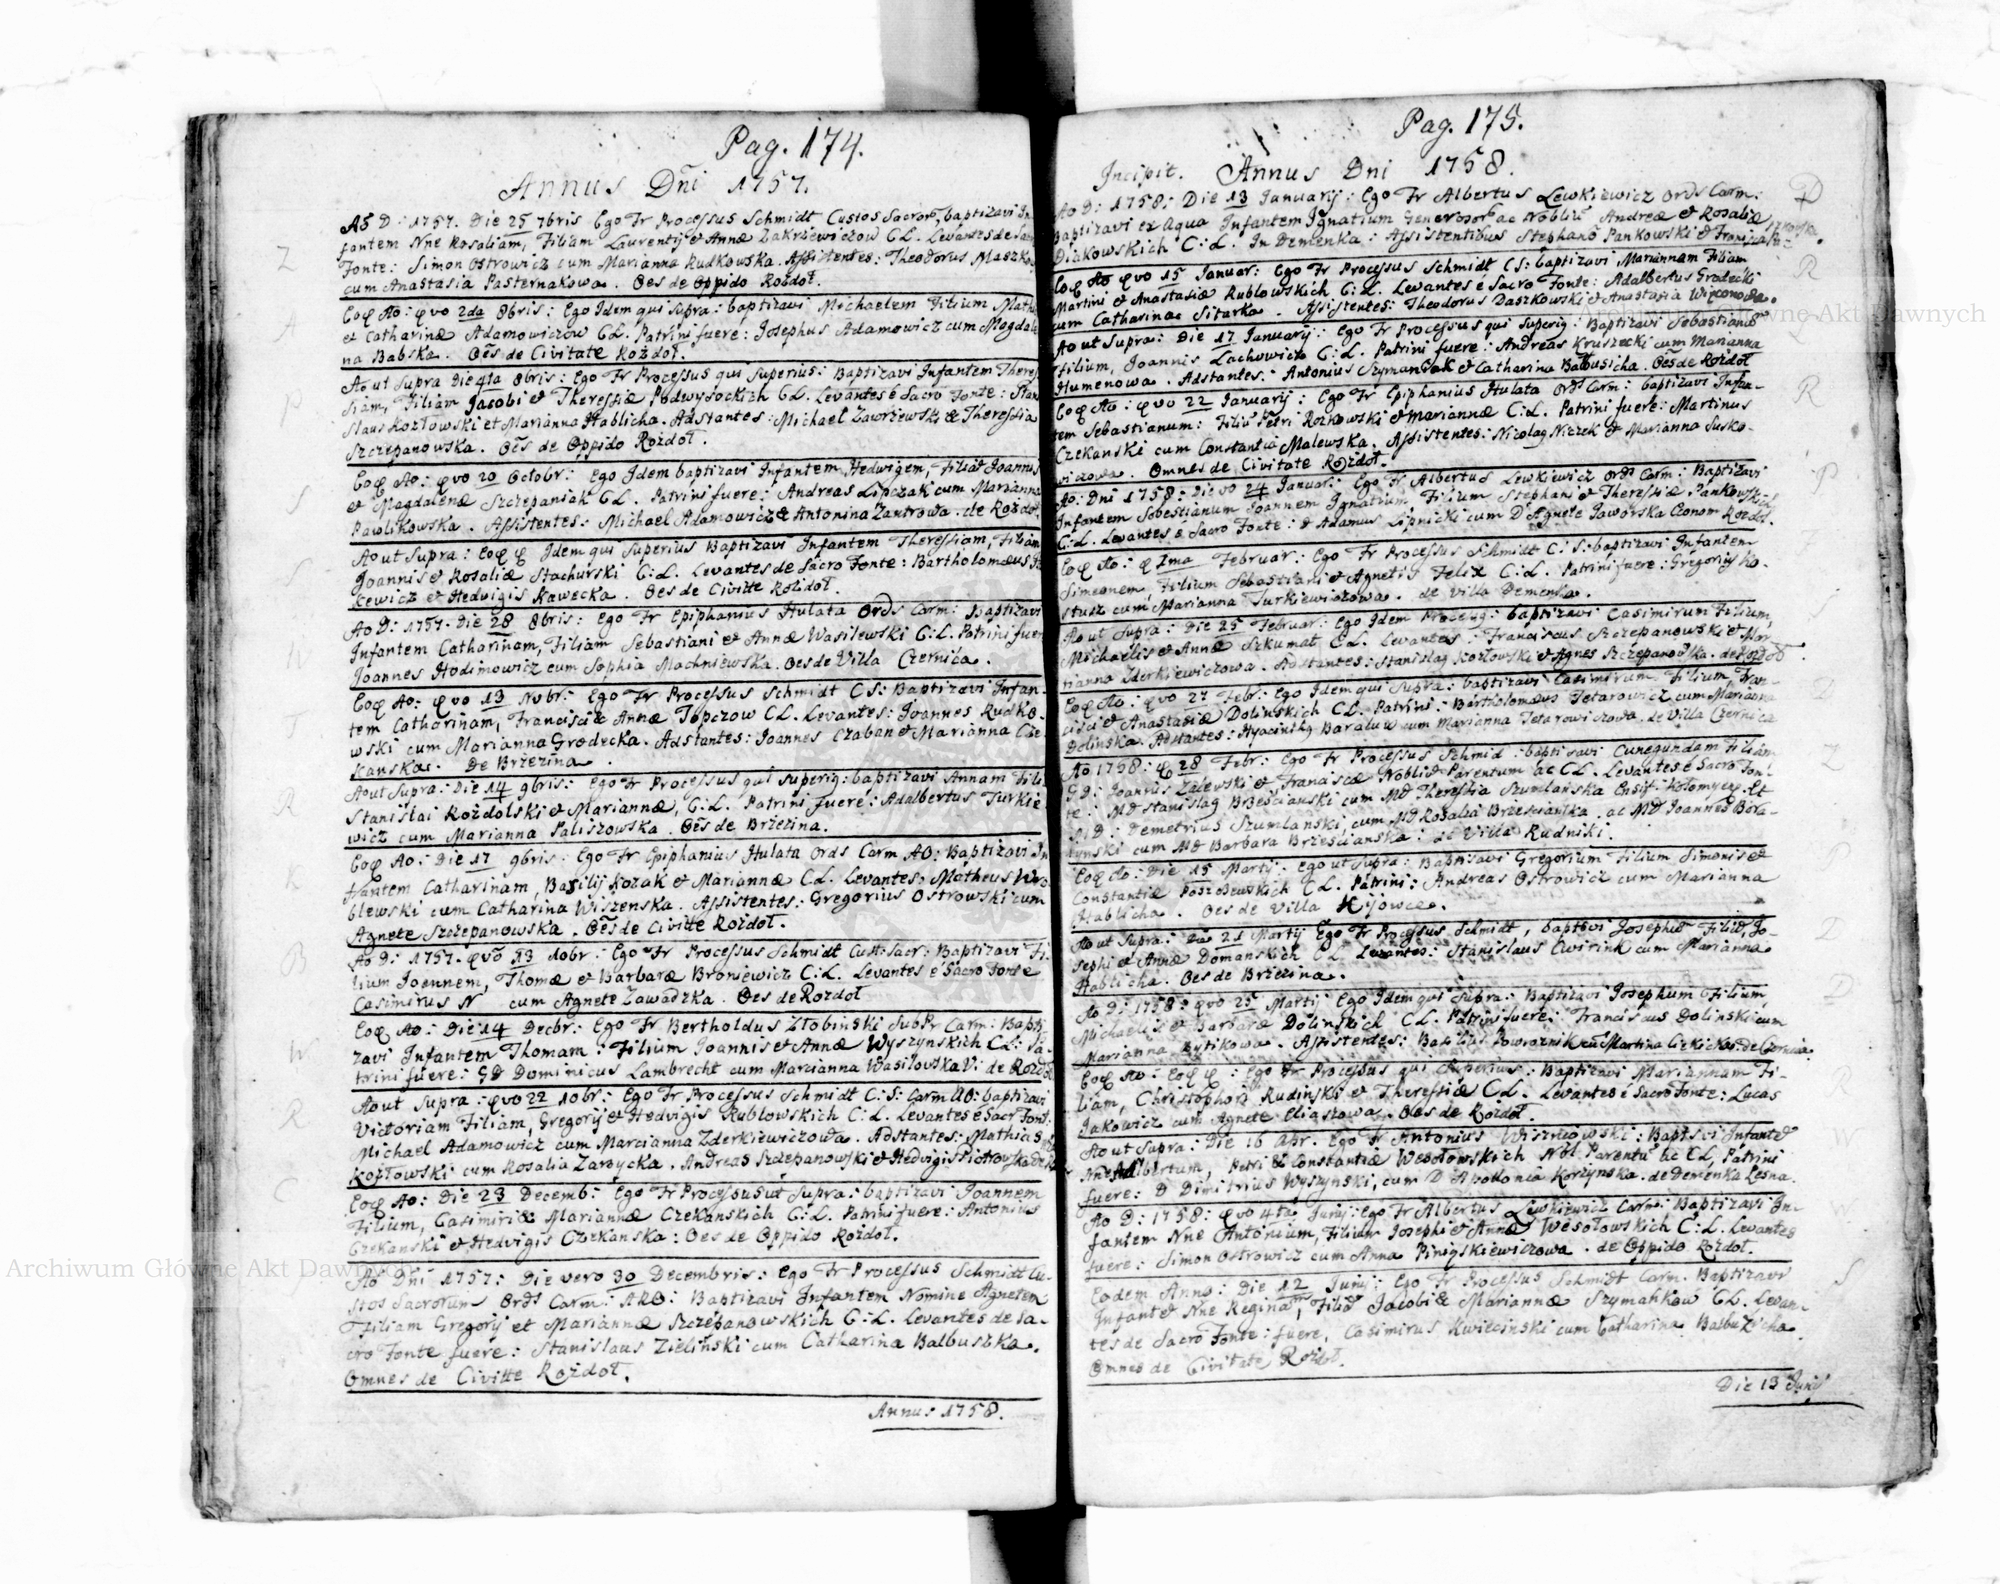 Pag. 174.
Annus Dñi 1757.
Ao D: 1757. Die 25 7bris Ego Fr Processus Schmidt Custos Sacror, baptizavi In
fantem Nne Rosaliam, Filiam Laurentij et Annæ Zakrzewiczow CL. Levantes de Sacro
Fonte: Simon Ostrowicz cum Marianna Rudkowska. Assistentes: Theodorus Maszko
cum Anastasia Pasternakowa. Oes de Oppido Rozdoł.
Z
Eoq Ao: qvo 2da 8bris: Ego Idem qui supra: baptizavi Michaelem Filium Math
et Catharinæ Adamowiczow CL. Patrini fuere: Josephus Adamowicz cum Magdale
na Babska. Oes de Civitate Rozdoł.
A
Ao ut Supra Die 4ta 8bris: Ego Fr Processus qui Superius: Baptizavi Infantem Theres
siam, Filiam Jacobi et Theressiæ Podwysockich CL. Levantes é Sacro Fonte: Stani
slaus Kozłowski et Marianna Hablicha. Adstantes: Michael Zaworzewski & Theressia
Szczepanowska. Oes de Oppido Rozdoł.
P
Eoq Ao: qvo 20 Octobr: Ego Idem baptizavi Infantem Hedwigem, Filiã Joannis
et Magdalenæ Szczepaniak CL. Patrini fuere: Andreas Lipczak cum Marianna
Pawlikowska. Assistentes: Michael Adamowicz & Antonina Zantrowa. de Rozdoł.
S
Ao ut Supra: Eoq q Idem qui superius Baptizavi Infantem Theressiam, Filiam
Joannis et Rosaliæ Stachurski C:L. Levantes de Sacro Fonte: Bartholomæus
kewicz et Hedvigis Kawecka. Oes de Civitte Rozdoł.
S
Ao D: 1757. Die 28 8bris: Ego Fr Epiphanius Hulata Ords Carm: Baptizavi
Infantem Catharinam, Filiam Sebastiani et Annæ Wasilewski C:L. Patrini fuere
Joannes Hodimowicz cum Sophia Machniewska. Oes de Villa Czernica.
W
Eoq Ao: qvo 13 Nvbr: Ego Fr Processus Schmidt CS: Baptizavi Infan-
tem Catharinam, Francisci & Annæ Topczow CL. Levantes: Joannes Rudko-
wski cum Marianna Grodecka. Adstantes: Joannes Czaban et Marianna Cze-
kanska. De Brzezina.
T
Ao ut Supra: Die 14 9bris: Ego Fr Processus qui Superig: baptizavi Annam Fili
Stanislai Rozdolski et Mariannæ, C:L. Patrini fuere: Adalbertus Turkie
wicz cum Marianna Paliszowska. Oes de Brzezina.
R
Eoq Ao: Die 17 9bris: Ego Fr Epiphanius Hulata Ords Carm AO: Baptizavi In
fantem Catharinam, Basilij Kozak et Mariannæ CL. Levantes: Matheus Wro
blewski cum Catharina Wiszenska. Assistentes: Gregorius Ostrowski cum
Agnete Szczepanowska. Oes de Civitte Rozdoł.
K
Ao D: 1757. qvo 13 10br: Ego Fr Processus Schmidt Cust: Sacr: Baptizavi Fi-
lium Joannem, Thomæ et Barbaræ Broniewicz C:L. Levantes é Sacro Fonte
Casimirus N cum Agnete Zawadzka. Oes de Rozdoł
B
Eoq Ao: Die 14 Decbr: Ego Fr Bertholdus Złobinski SubPr Carm: Bapti
zavi Infantem Thomam: Filium Joannis et Annæ Wyszynskich CL: Pa-
trini fuere: GD Dominicus Lambrecht cum Marcianna Wasilowska V: de Rozdoł
W
Ao ut Supra: qvo 22 10br: Ego Fr Processus Schmidt C:S: Carm AO: baptizavi
Victoriam Filiam, Gregorij et Hedvigis Rublowskich C:L. Levantes é Sacr Font:
Michael Adamowicz cum Marcianna Zderkiewiczowa. Adstantes: Mathias
Kozłowski cum Rosalia Zarzycka. Andreas Szczepanowski et Hedvigis Piotrowska de
R
Eoq Ao: Die 23 Decemb: Ego Fr Processus ut Supra: baptizavi Joannem
Filium, Casimiri & Mariannæ Czekanskich C:L. Patrini fuere: Antonius
Czekanski et Hedvigis Czekanska: Oes de Oppido Rozdoł.
C
Ao Dni 1757: Die vero 30 Decembris: Ego Fr Processus Schmidt Cu-
stos Sacrorum Ords Carm: ARO: Baptizavi Infantem Nomine Agnetem
Filiam Gregorij et Mariannæ Szczepanowskich C:L. Levantes de Sa-
cro Fonte fuere: Stanislaus Zielinski cum Catharina Balbuszka.
Omnes de Civitte Rozdoł.
Annus 1758.
Pag. 175.
Incipit. Annus Dni 1758.
Ao D: 1758: Die 13 Januarij: Ego Fr Albertus Lewkiewicz Ords Carm:
Baptizavi ex Aqua Infantem Ignatium Generosor ac Nobliu Andreæ et Rosaliæ
Diakowskich C:L. In Demenka: Assistentibus Stephano Pankowski et Francisca
D
Eoq Ao qvo 15 Januar: Ego Fr Processus Schmidt CS: baptizavi Mariannam Filiam
Martini et Anastasiæ Rublowskich C:L. Levantes é Sacro Fonte: Adalbertus Gradecki
cum Catharina Sitarka. Assistentes: Theodorus Daszkowski et Anastasia
R
Ao ut Supra: Die 17 Januarij: Ego Fr Processus qui Superig: Baptizavi Sebastianum
Filium, Joannis Lachowicz C:L. Patrini fuere: Andreas Kruszecki cum Marianna
Humenowa. Adstantes: Antonius Szymaniak et Catharina Babusicha. Oes de Rozdoł
L
Eoq Ao: qvo 22 Januarij: Ego Fr Epiphanius Hulata Ords Carm: baptizavi Infan-
tem Sebastianum: Filiũ Petri Rozkowski et Mariannæ C:L. Patrini fuere: Martinus
Czekanski cum Constantia Malewska. Assistentes: Nicolag Niczek et Marianna Susko-
wiczowa. Omnes de Civitate Rozdoł.
R
Ao: Dni 1758: Die vo 24 Januar: Ego Fr Albertus Lewkiewicz Ords Carm: Baptizavi
Infantem Sobestianum Joannem Ignatium, Filium Stephani et Theressiæ Pankowski
C:L. Levantes é Sacro Fonte: D Adamus Lipnicki cum D Agnete Jaworska Econom Rozdoł.
P
Eoq Ao: q 1ma Februar: Ego Fr Processus Schmidt C:S: baptizavi Infantem
Simeonem, Filium Sebastiani et Agnetis Felix C:L. Patrini fuere: Gregorig Ko-
stusz cum Marianna Turkiewiczowa. de Villa Demenka.
Ao ut Supra: Die 25 Februar: Ego Idem Procesug: baptizavi Casimirum Filium,
Michaelis et Annæ Szkumat CL. Levantes: Franciscus Szczepanowski et Mar-
tianna Zderkiewiczowa. Adstantes: Stanislag Kozłowski et Agnes Szczepanowska. de Rozdoł.
Eoq Ao: qvo 27 Febr: Ego Idem qui Supra: baptizavi Casimirum Filium, Fran-
cisci et Anastasiæ Dolinskich CL. Patrini: Bartholomæus Tetarowicz cum Marianna
Dolinska. Adstantes: Hyacinthg Baraluw cum Marianna Tetarowiczowa. de Villa Czernica
D
Ao 1758: q 28 Febr: Ego Fr Processus Schmid: baptisavi Cunegundam Filiam
GD: Joannis Zalewski et Franciscæ Nobliũ Parentum ac CL. Levantes é Sacro Fon-
te: MD Stanislag Brzescianski cum MD Theressia Szumlanska Ensif: Kołomyen. Et
MD: Demetrius Szumlanski, cum MD Rosalia Brzescianska. ac MD Joannes Bora-
tynski cum MD Barbara Brzescianska: de Villa Rudniki.
Z
Eoq Ao: Die 15 Martij: Ego ut Supra: Baptisavi Gregorium Filium Simonis et
Constantiæ Poszodewskich CL. Patrini: Andreas Ostrowicz cum Marianna
Hablicha. Oes de Villa Kijowce.
P
Ao ut Supra: Die 21 Martij Ego Fr Processus Schmidt, baptizvi Josephũ Filiũ, Jo-
sephi et Annæ Domanskich CL. Levantes: Stanislaus Cwirink cum Marianna
Hablicha. Oes de Brzezina.
D
Ao D: 1758: qvo 25 Martij Ego Idem qui Supra: Baptizavi Josephum Filium,
Michaelis et Barbaræ Dolinskich CL. Patrini fuere: Franciscus Dolinski cum
Marianna Bytikowa. Assistentes: Basilius Powroznik cũ Martina Cizkicka. de Czernica.
D
Eoq Ao: Eoq q: Ego Fr Processus qui Superius: Baptizavi Mariannam Fi-
liam, Christophori Rudinski et Theressiæ CL. Levantes é Sacro Fonte: Lucas
Jakowicz cum Agnete Eliaszowa. Oes de Rozdoł.
R
Ao ut Supra: Die 16 Apr. Ego Fr Antonius Wiszniowski: Baptsvi Infantẽ
Nne Albertum, Petri & Constantiæ Wesołowskich Nobl Parentũ ac CL, Patrini
fuere: D Dimitrius Wyszynski, cum D Apollonia Korzynska. de Demenka Lesna.
W
Ao D: 1758: qvo 4ta Junij: Ego Fr Albertus Lewkiewicz Carm: Baptizavi In-
fantem Nne Antonium, Filium Josephi et Annæ Wesołowskich C:L. Levantes
fuere: Simon Ostrowicz cum Anna Pinigskiewiczowa. de Oppido Rozdoł.
W
Eodem Anno: Die 12 Junij: Ego Fr Processus Schmidt Carm. Baptizavi
Infantẽ Nne Reginã, Filiã Jacobi & Mariannæ Szymankow CL. Levan-
tes de Sacro Fonte: fuere, Casimirus Kwiecinski cum Catharina Balbuzicha.
Omnes de Civitate Rozdoł.
S
Die 13 Junij
Archiwum Główne Akt Dawnych
Archiwum Główne Akt Dawnych